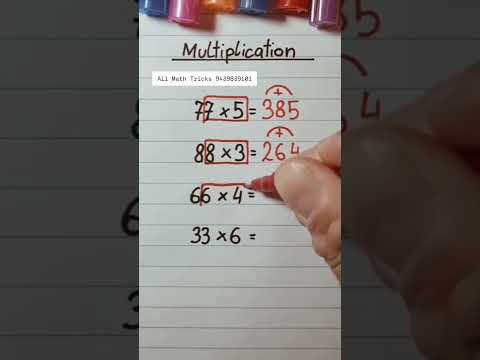 Multiplication
All Math Tricks 9439839101
+
77 × 5 = 385
+
88 × 3 = 264
66 × 4 =
33 × 6 =